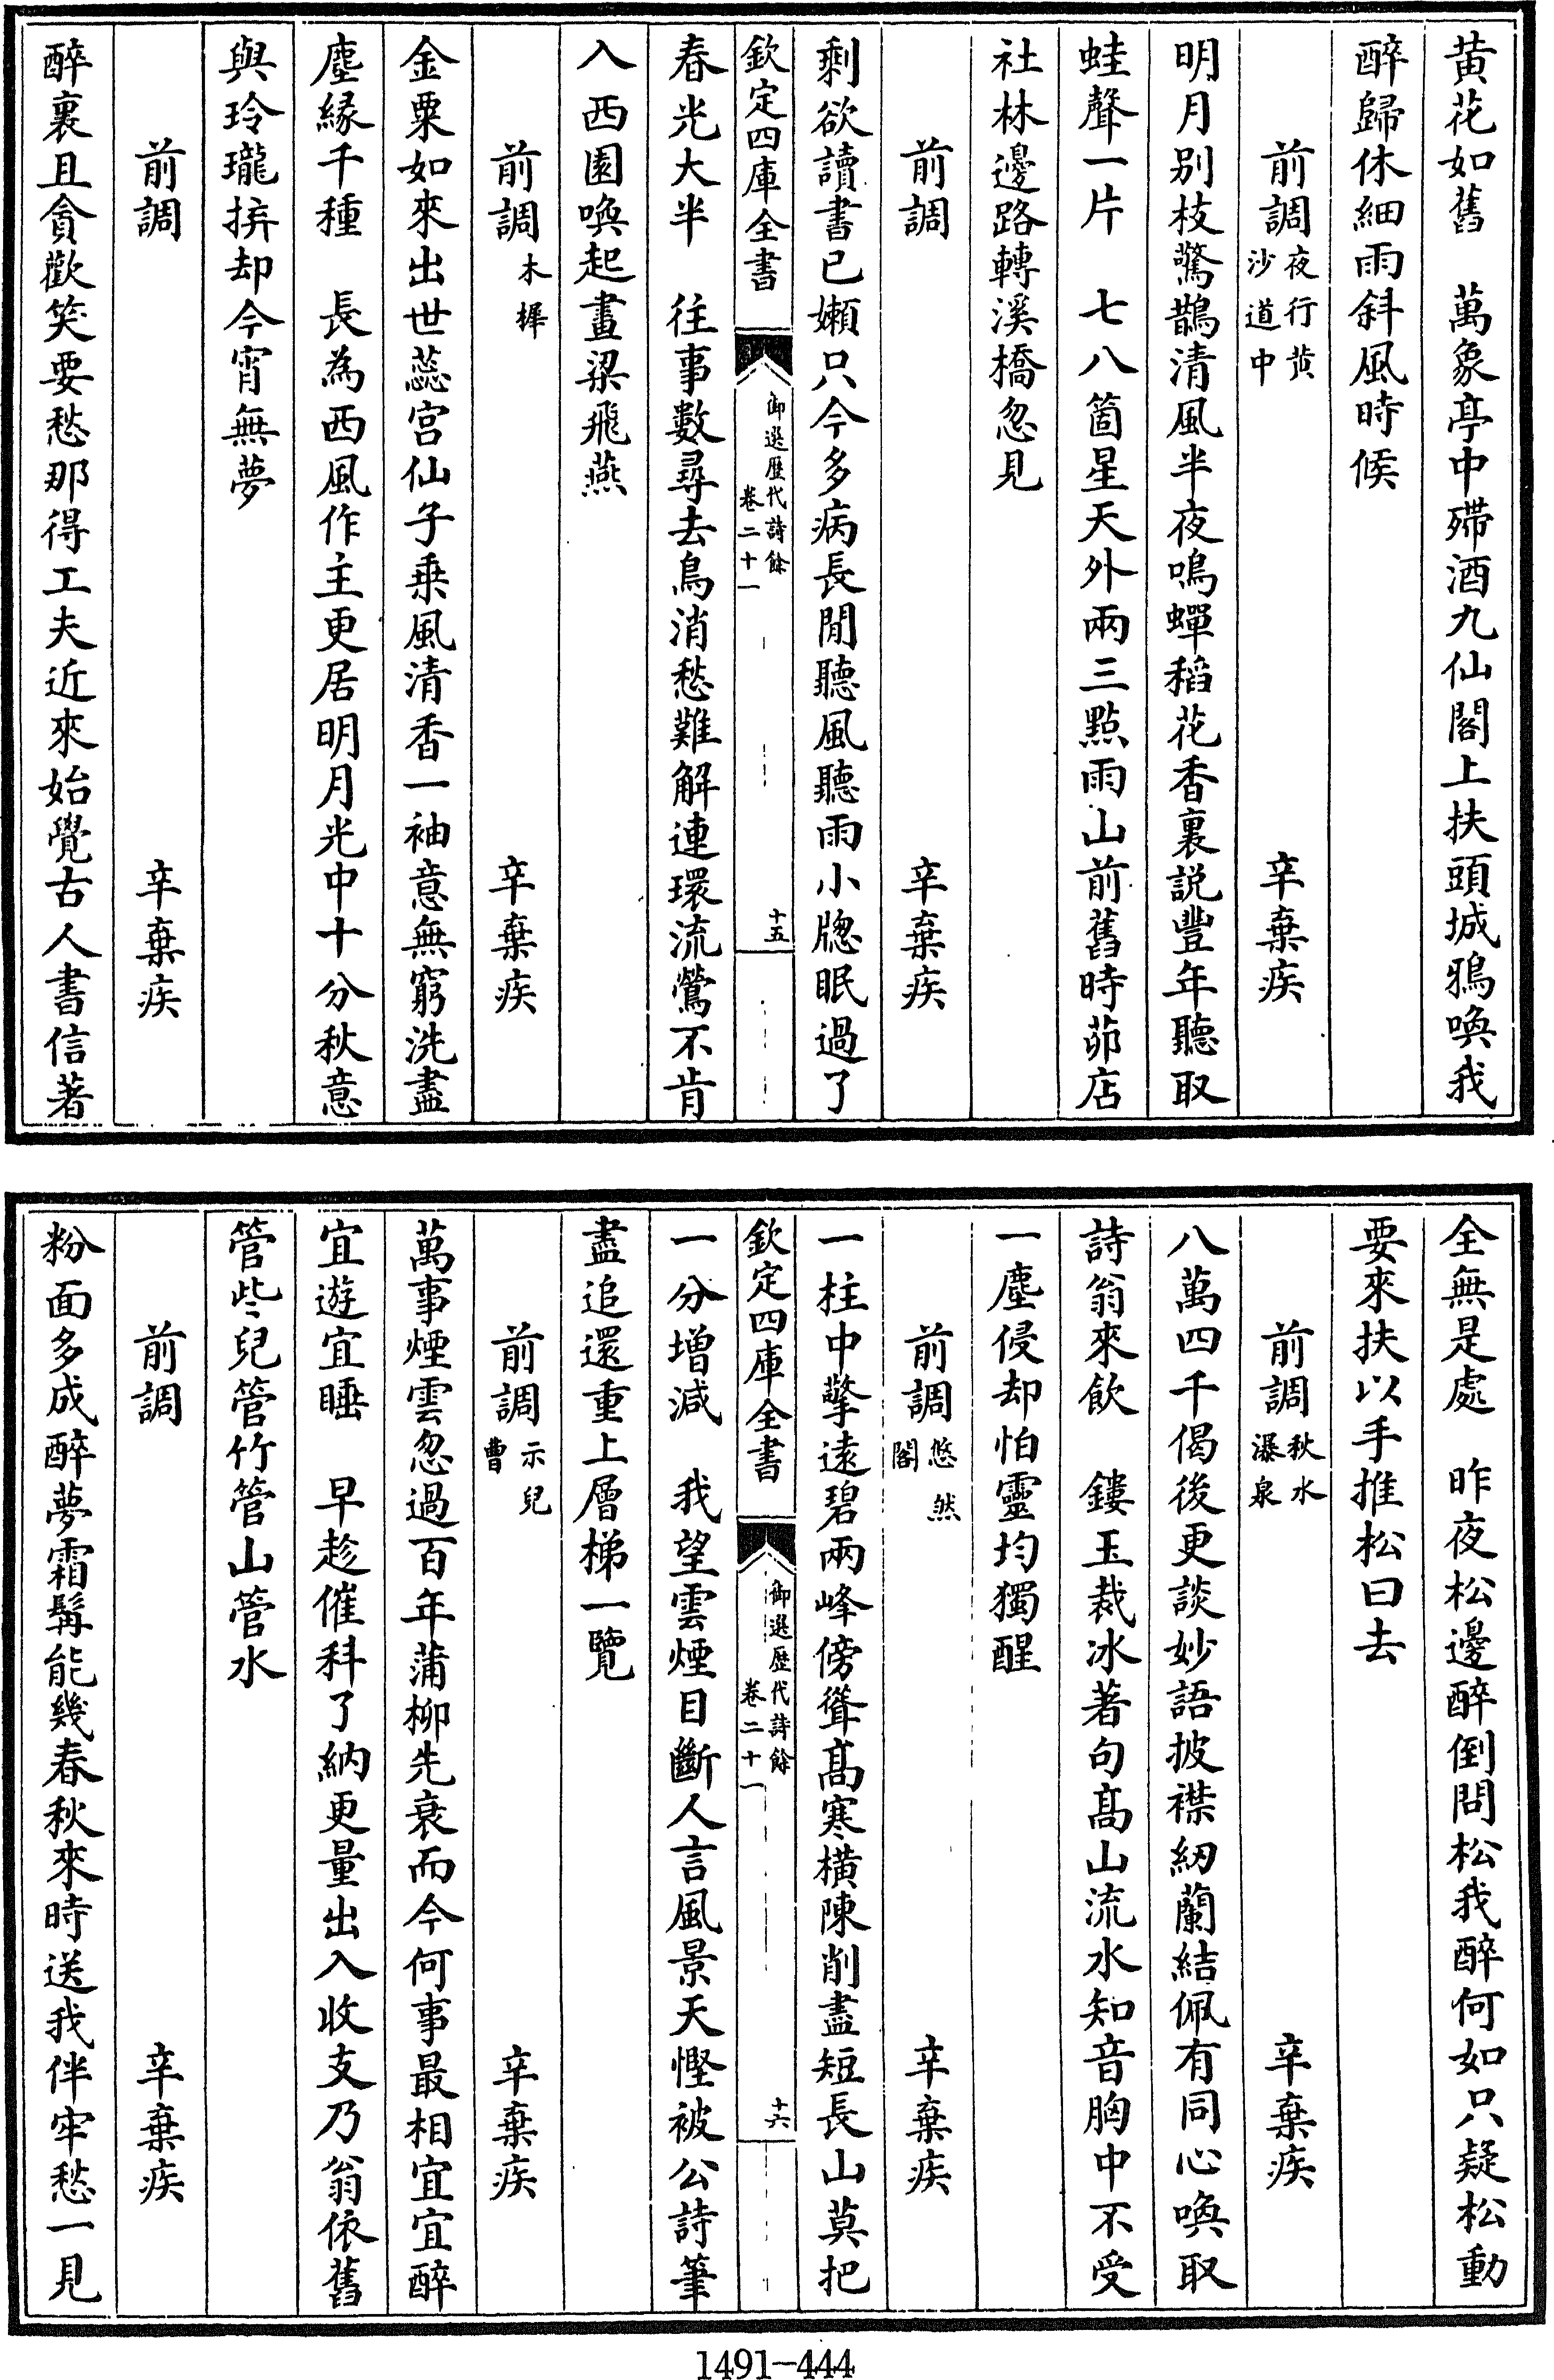 黄花如舊　萬象亭中殢酒九仙閣上扶頭城鴉喚我
醉歸休細雨斜風時候
前調夜行黄沙道中　辛棄疾
明月别枝驚鵲清風半夜鳴蟬稻花香裏説豐年聽取
蛙聲一片　七八箇星天外兩三點雨山前舊時茆店
社林邊路轉溪橋忽見
前調　辛棄疾
剩欲讀書已嬾只今多病長閒聽風聽雨小牕眠過了
欽定四庫全書　御選歷代詩餘　卷二十一　十五
春光大半　往事數尋去鳥消愁難解連環流鶯不肯
入西園喚起畫梁飛燕
前調木樨　辛棄疾
金粟如來出世蕊宫仙子乗風清香一袖意無窮洗盡
塵緣千種　長為西風作主更居明月光中十分秋意
與玲瓏拚却今宵無夢
前調　辛棄疾
醉裏且貪歡笑要愁那得工夫近來始覺古人書信著
全無是處　昨夜松邊醉倒問松我醉何如只疑松動
要來扶以手推松曰去
前調秋水瀑泉　辛棄疾
八萬四千偈後更談妙語披襟紉蘭結佩有同心喚取
詩翁來飲　鏤玉裁冰著句髙山流水知音胸中不受
一塵侵却怕靈均獨醒
前調悠然閣　辛棄疾
一柱中擎遠碧兩峰傍聳髙寒横陳削盡短長山莫把
欽定四庫全書　御選歷代詩餘　卷二十一　十六
一分增减　我望雲煙目斷人言風景天慳被公詩筆
盡追還重上層梯一覽
前調示兒曹　辛棄疾
萬事煙雲忽過百年蒲柳先衰而今何事最相宜宜醉
宜遊宜睡　早趁催科了納更量出入收支乃翁依舊
管些兒管竹管山管水
前調　辛棄疾
粉面多成醉夢霜髯能幾春秋來時送我伴牢愁一見
1491-444